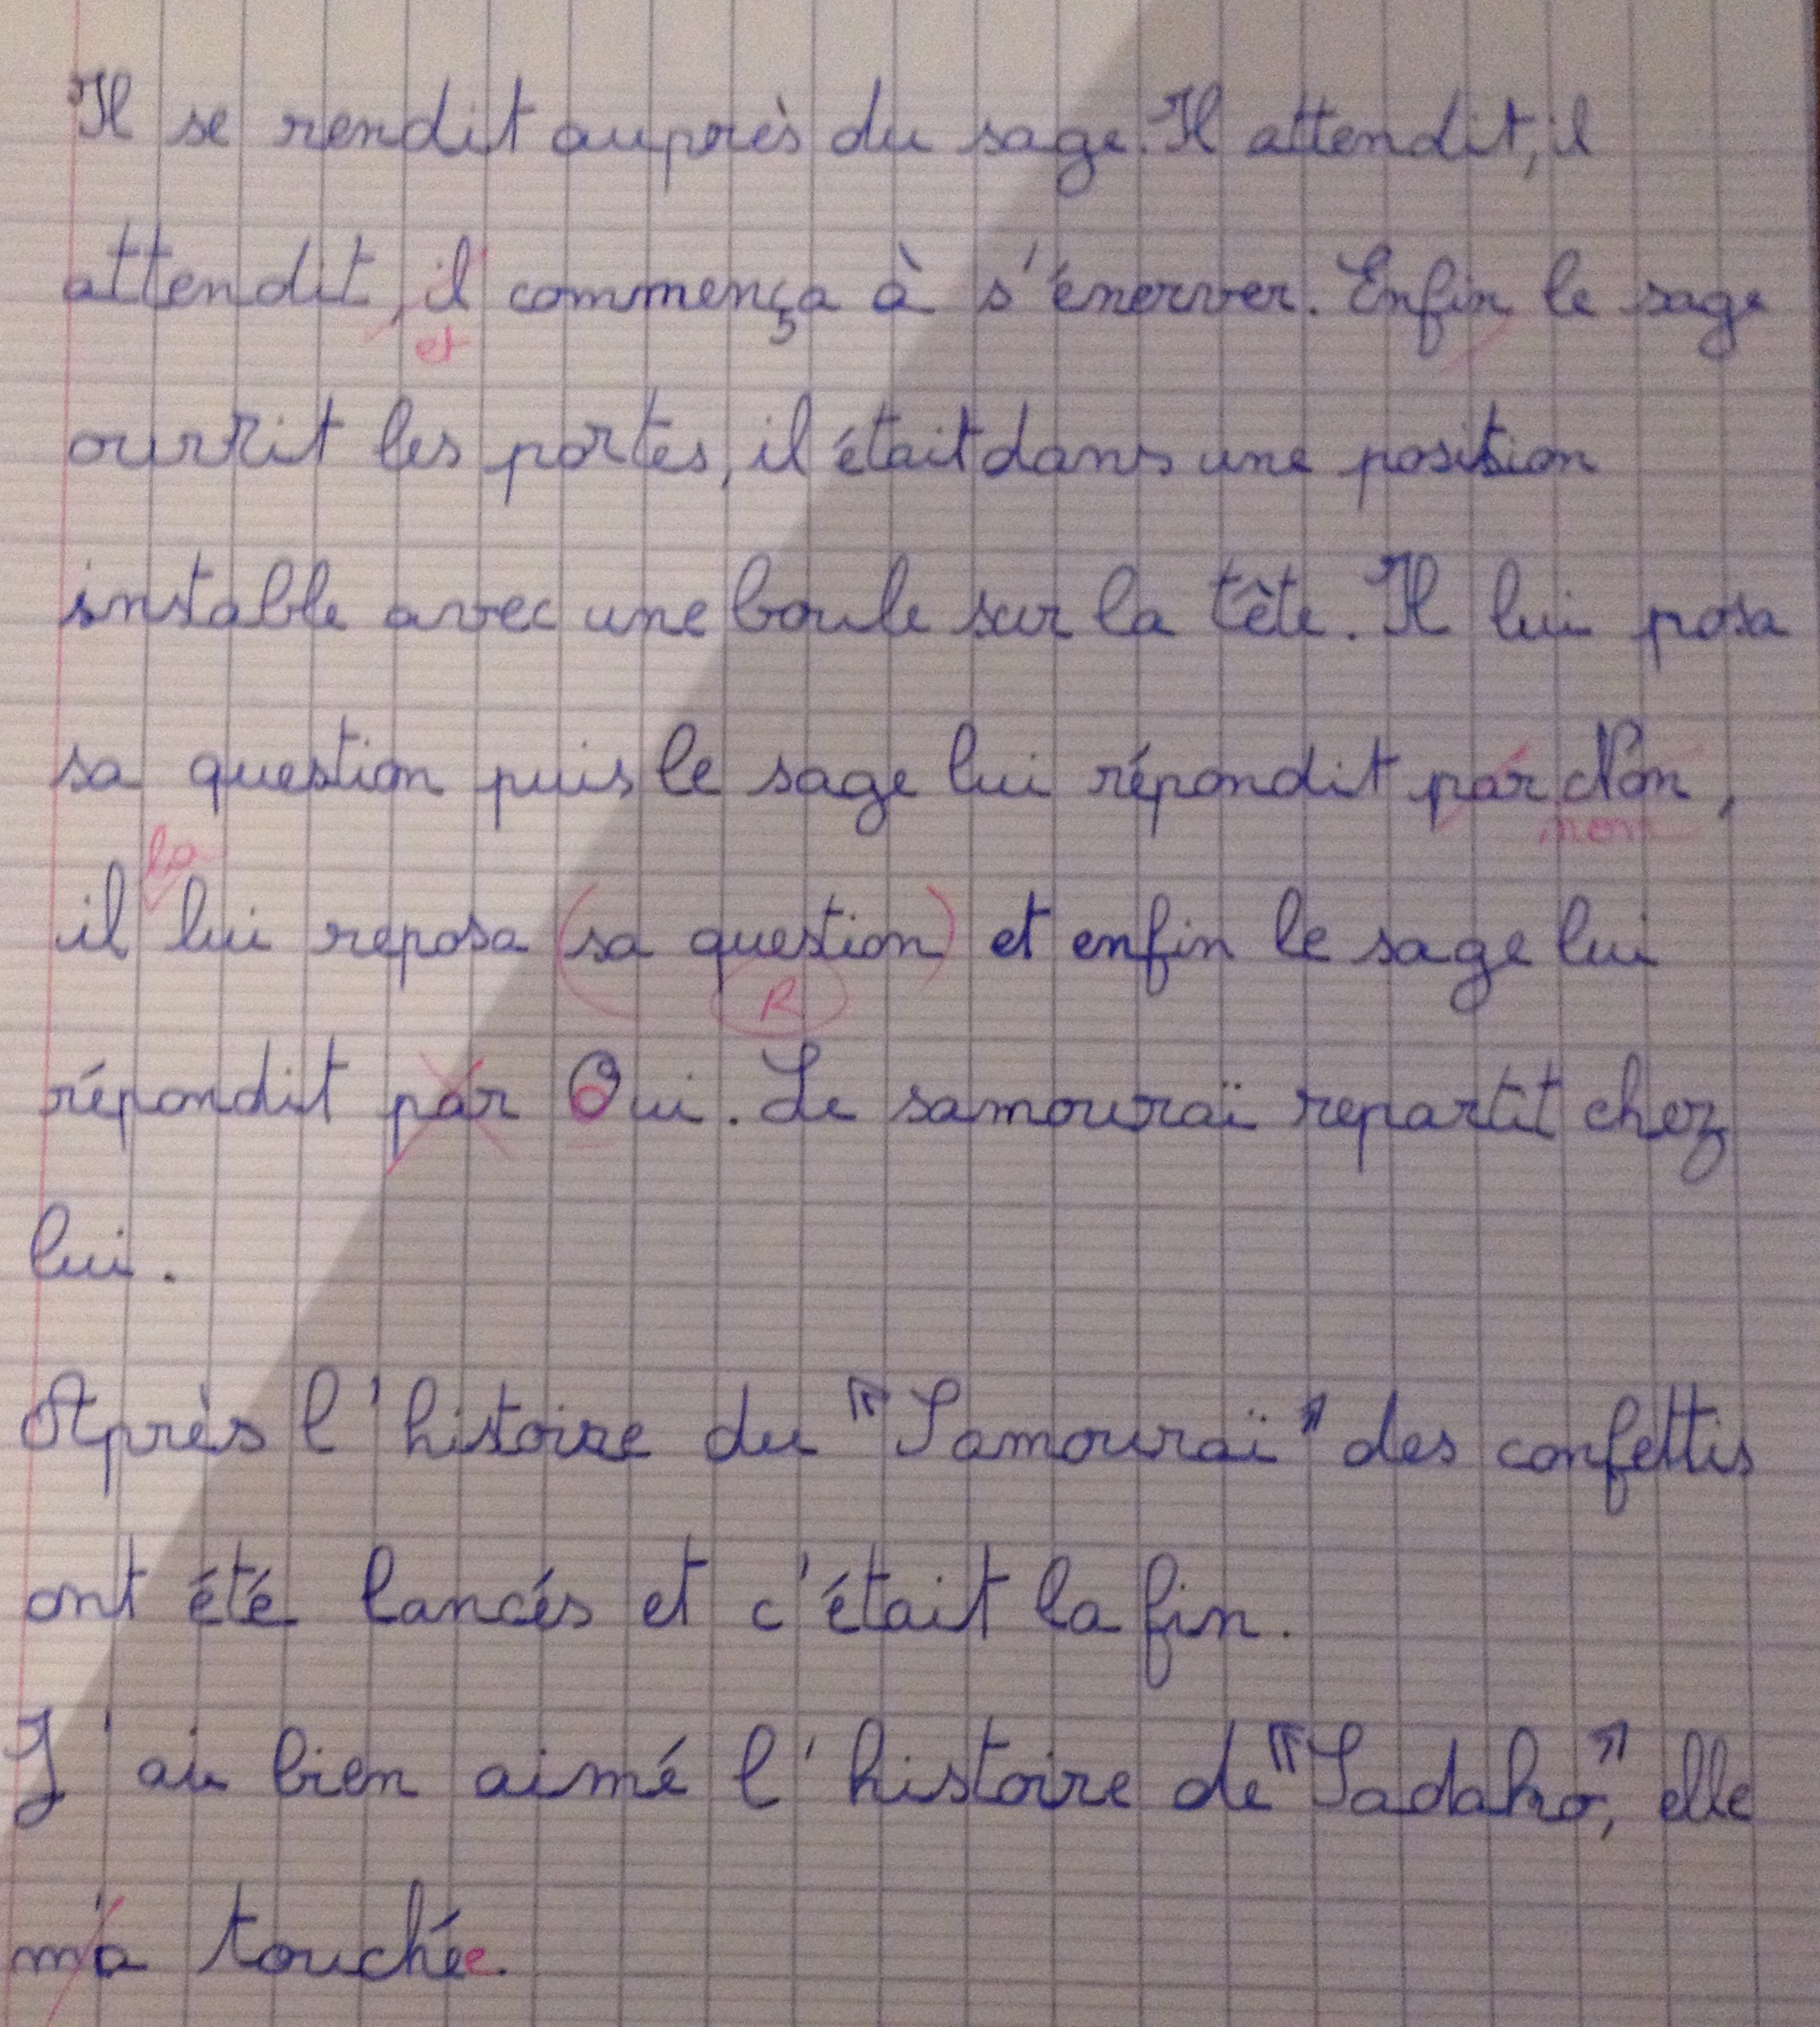 Il se rendit auprès du sage. Il attendit, il
attendit, il commença à s'énerver. Enfin le sage
et
ouvrit les portes, il était dans une position
instable avec une boule sur la tête. Il lui posa
sa question puis le sage lui répondit par Non,
non
la
il lui reposa (sa question) et enfin le sage lui
R
répondit par Oui. Le samouraï repartit chez
lui.
Après l'histoire du "Samouraï" des confettis
ont été lancés et c'était la fin.
J'ai bien aimé l'histoire de "Sadako", elle
m'a touchée.